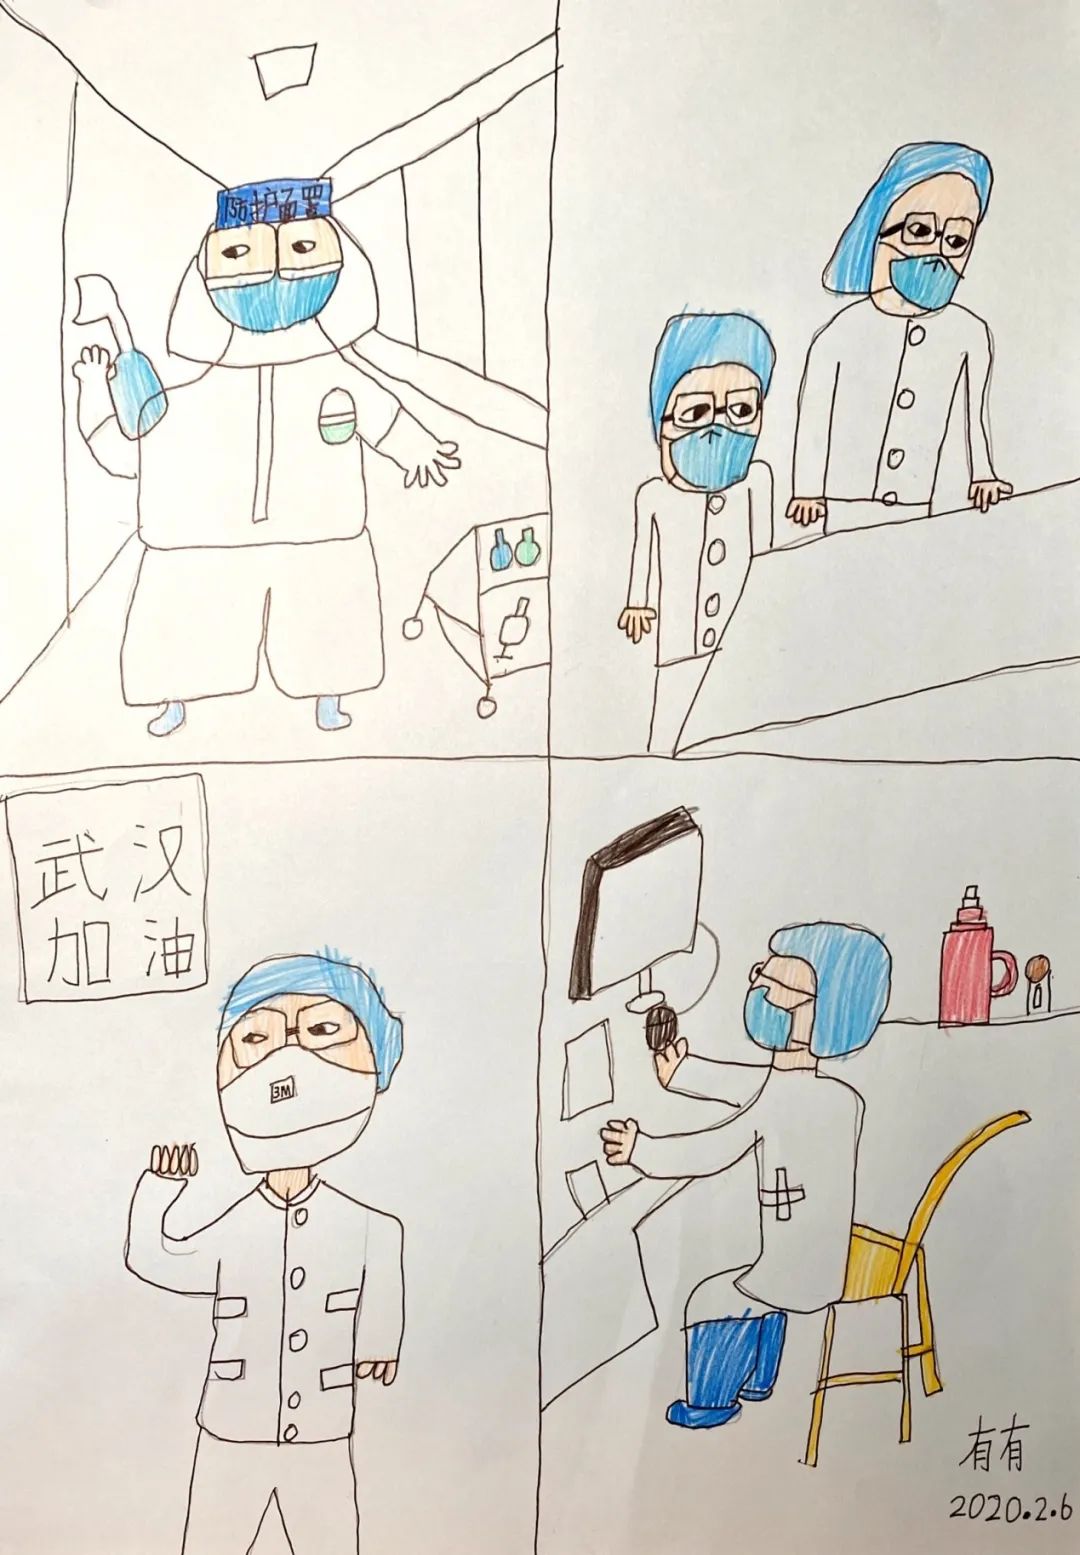 防护面罩
武汉
加油
3M
有有
2020.2.6